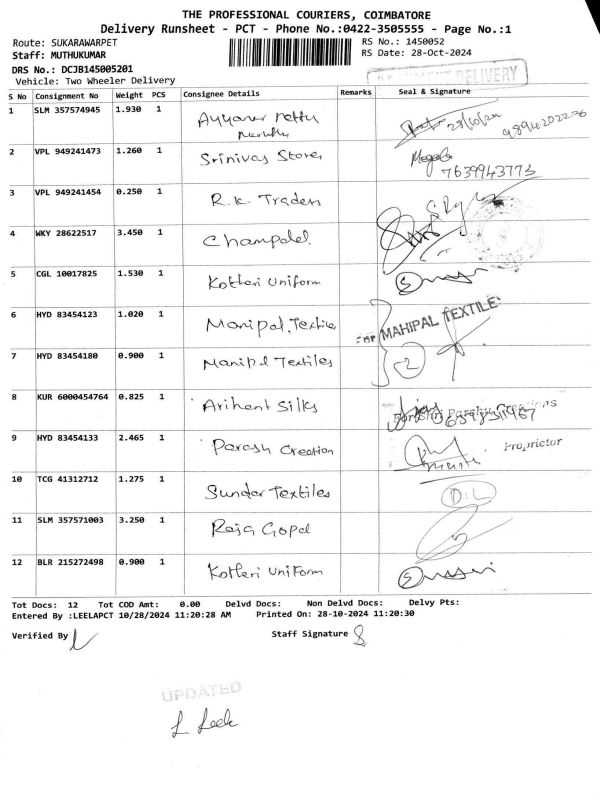 THE PROFESSIONAL COURIERS, COIMBATORE
Delivery Runsheet - PCT - Phone No.:0422-3505555 - Page No.:1
Route: SUKARAWARPET RS No.: 1450052
Staff: MUTHUKUMAR RS Date: 28-Oct-2024
DRS No.: DCJB145005201
DOCUMENT DELIVERY
Vehicle: Two Wheeler Delivery
S No Consignment No Weight PCS Consignee Details Remarks Seal & Signature
1 SLM 357574945 1.930 1 Ayyanar 28/10/24
2 VPL 949241473 1.260 1 Srinivas Stores
7639943773
3 VPL 949241454 0.250 1 R.K. Traders
4 WKY 28622517 3.450 1
5 CGL 10017825 1.530 1 Kothari Uniform
6 HYD 83454123 1.020 1 Manipal Textiles
For MAHIPAL TEXTILE
7 HYD 83454180 0.900 1 Manipal Textiles 2
8 KUR 6000454764 0.825 1 Arihant Silks
9 HYD 83454133 2.465 1 Parash Creation Proprietor
10 TCG 41312712 1.275 1 Sundar Textiles
11 SLM 357571003 3.250 1 Raja Gopal
12 BLR 215272498 0.900 1 Kothari Uniform
Tot Docs: 12 Tot COD Amt: 0.00 Delvd Docs: Non Delvd Docs: Delvy Pts:
Entered By :LEELAPCT 10/28/2024 11:20:28 AM Printed On: 28-10-2024 11:20:30
Verified By Staff Signature
UPDATED